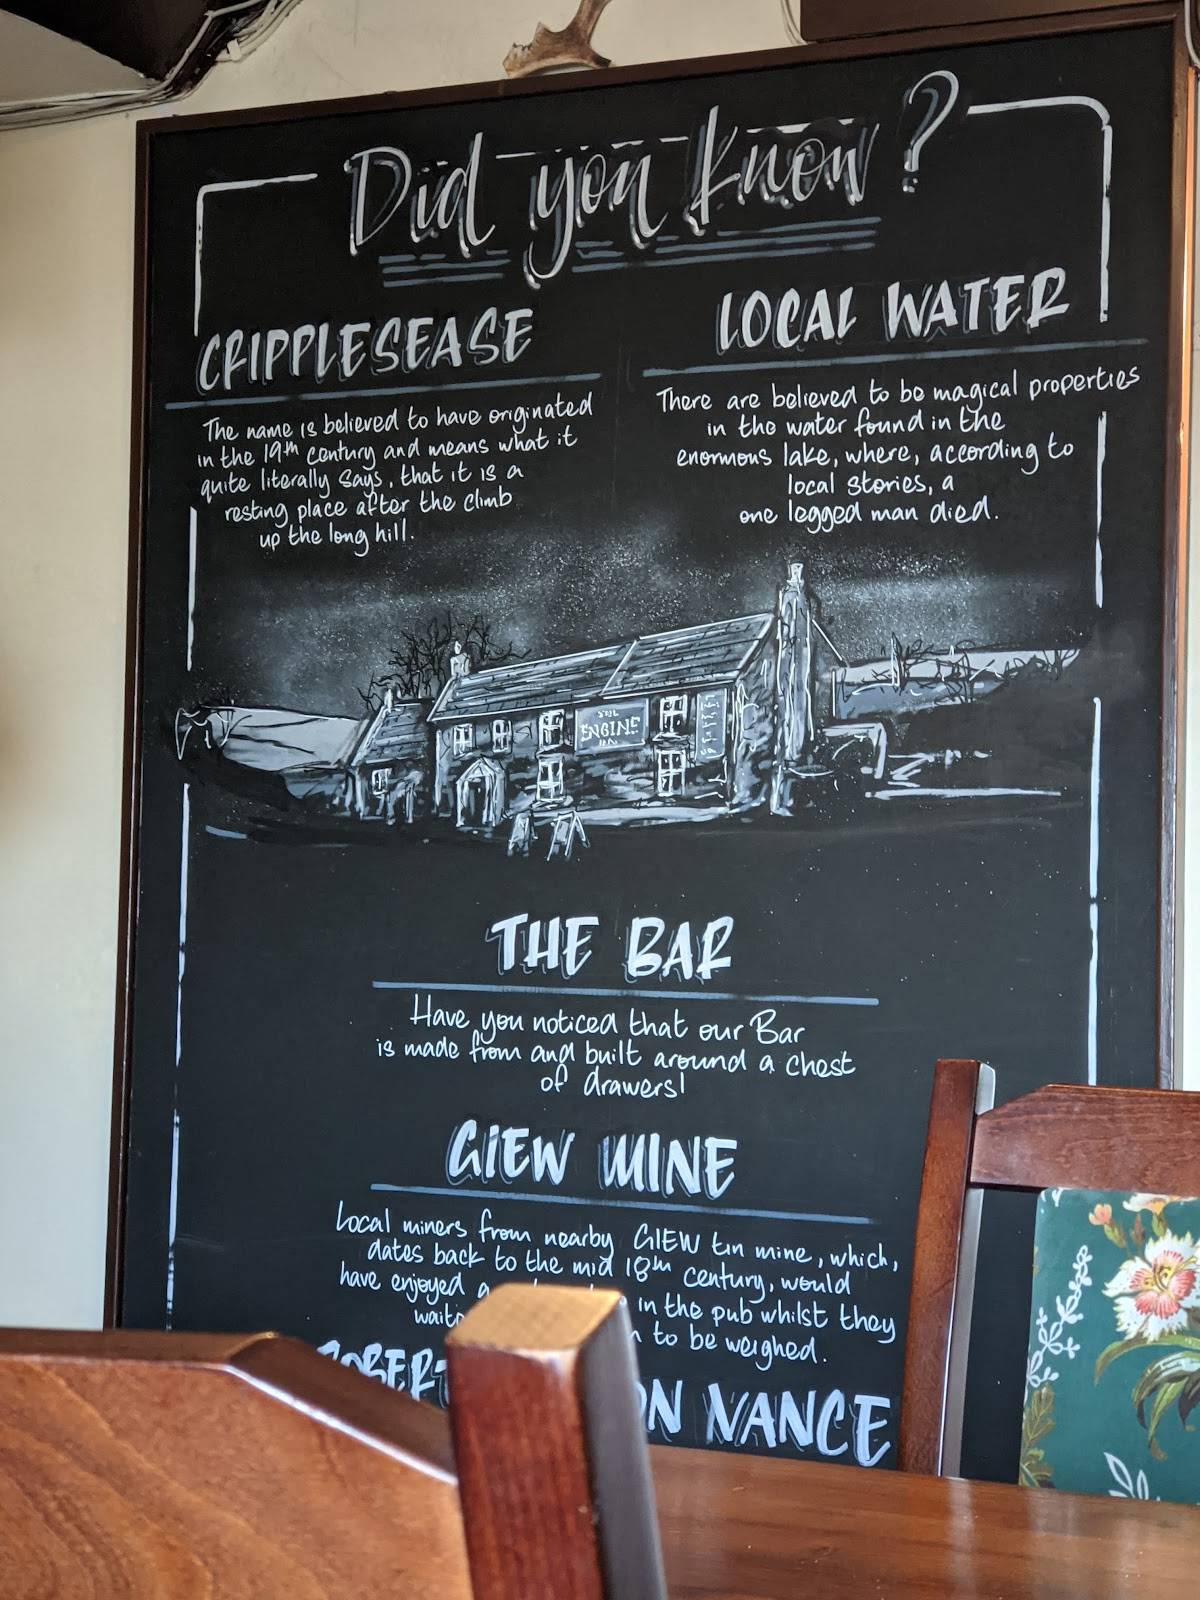 Did you know?
CRIPPLESEASE
The name is believed to have originated
in the 19th century and means what it
quite literally says, that it is a
resting place after the climb
up the long hill.
LOCAL WATER
There are believed to be magical properties
in the water found in the
enormous lake, where, according to
local stories, a
one legged man died.
ENGINE
THE BAR
Have you noticed that our Bar
is made from and built around a chest
of drawers!
GIEW MINE
Local miners from nearby GIEW tin mine, which,
dates back to the mid 18th century, would
have enjoyed a in the pub whilst they
to be weighed.
NANCE